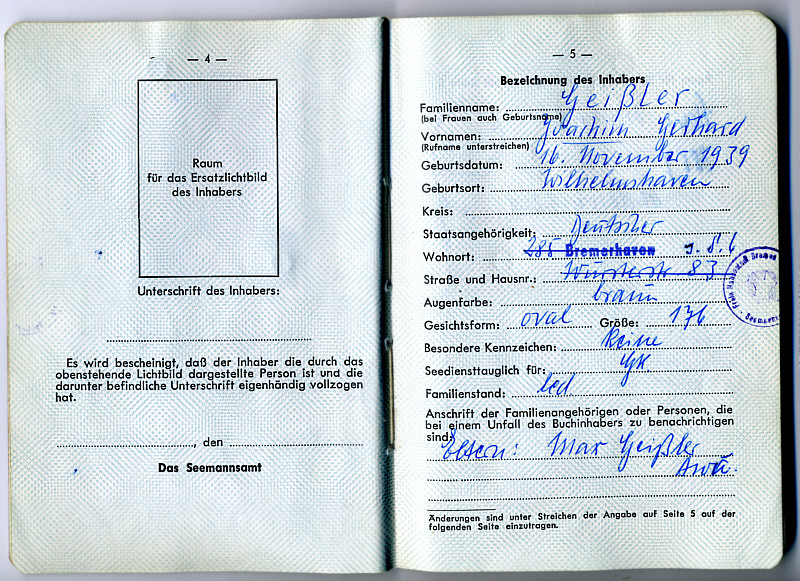 — 4 —
Raum
für das Ersatzlichtbild
des Inhabers
Unterschrift des Inhabers:
Es wird bescheinigt, daß der Inhaber die durch das
obenstehende Lichtbild dargestellte Person ist und die
darunter befindliche Unterschrift eigenhändig vollzogen
hat.
, den
Das Seemannsamt
— 5 —
Bezeichnung des Inhabers
Familienname: Geißler
(bei Frauen auch Geburtsname)
Vornamen: Joachim Gerhard
(Rufname unterstreichen)
Geburtsdatum: 16. November 1939
Geburtsort: Wilhelmshaven
Kreis:
Staatsangehörigkeit: Deutscher
Wohnort: 285 Bremerhaven
Straße und Hausnr.: Wursterstr 83
Augenfarbe: braun
Gesichtsform: oval Größe: 176
Besondere Kennzeichen: keine
Seediensttauglich für: GK
Familienstand: led
Anschrift der Familienangehörigen oder Personen, die
bei einem Unfall des Buchinhabers zu benachrichtigen
sind: Eltern: Max Geißler
Änderungen sind unter Streichen der Angabe auf Seite 5 auf der
folgenden Seite einzutragen.